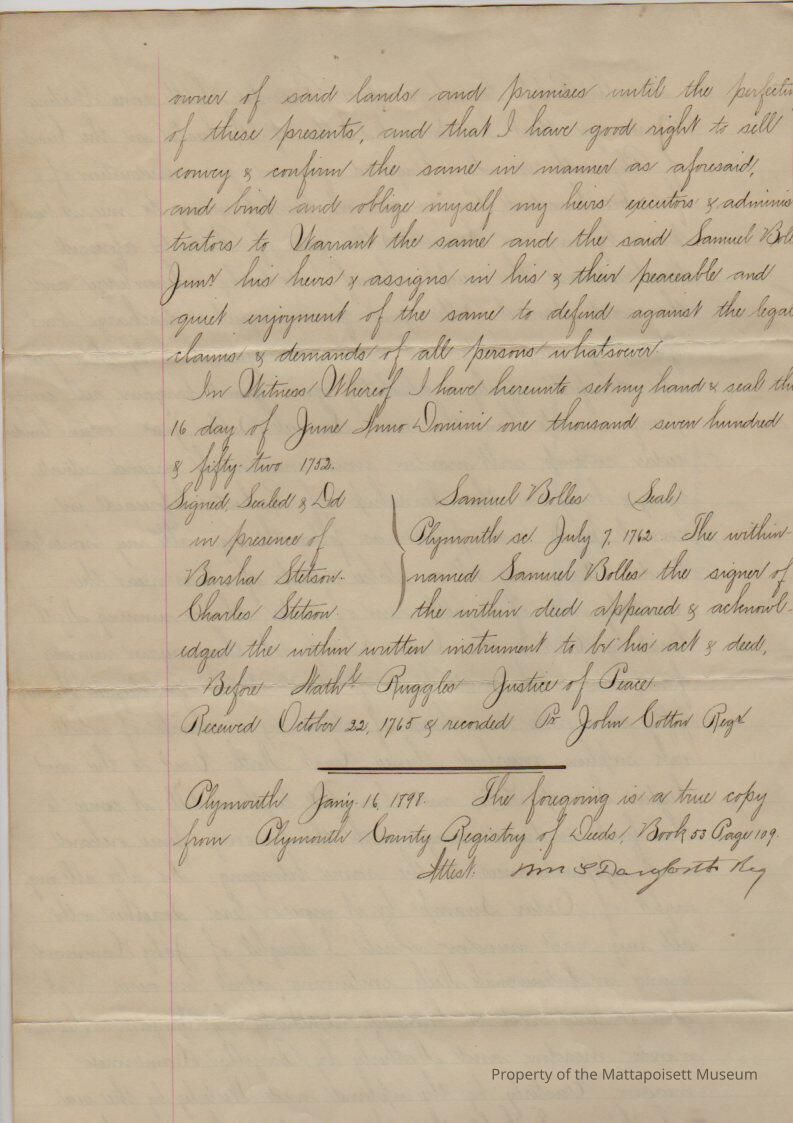 owner of said lands and premises until the perfectin
of these presents, and that I have good right to sell
convey & confirm the same in manner as aforesaid,
and bind and oblige myself my heirs executors & adminis
trators to Warrant the same and the said Samuel Boll
Junr his heirs & assigns in his & their peaceable and
quiet enjoyment of the same to defend against the legal
claims & demands of all persons whatsoever.
In Witness Whereof I have hereunto set my hand & seal th
16 day of June Anno Domini one thousand seven hundred
& fifty-two 1752.
Signed, Sealed & Dd
in presence of
Barsha Stetson.
Charles Stetson.
Samuel Bolles (Seal)
Plymouth sc. July 7, 1762. The within
named Samuel Bolles the signer of
the within deed appeared & acknowl-
edged the within written instrument to be his act & deed,
Before Nathll Ruggles Justice of Peace.
Received October 22, 1765 & recorded Pr John Cotton Regr
Plymouth Jany. 16, 1898. The foregoing is a true copy
from Plymouth County Registry of Deeds, Book 53 Page 109.
Attest: Wm S Danforth Reg
Property of the Mattapoisett Museum